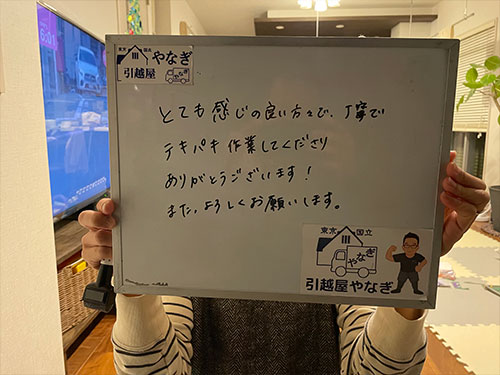 東京 国立
やなぎ
引越屋
とても感じの良い方々で、丁寧で
テキパキ作業してくださり
ありがとうございます!
また、よろしくお願いします。
東京 国立
やなぎ
引越屋やなぎ